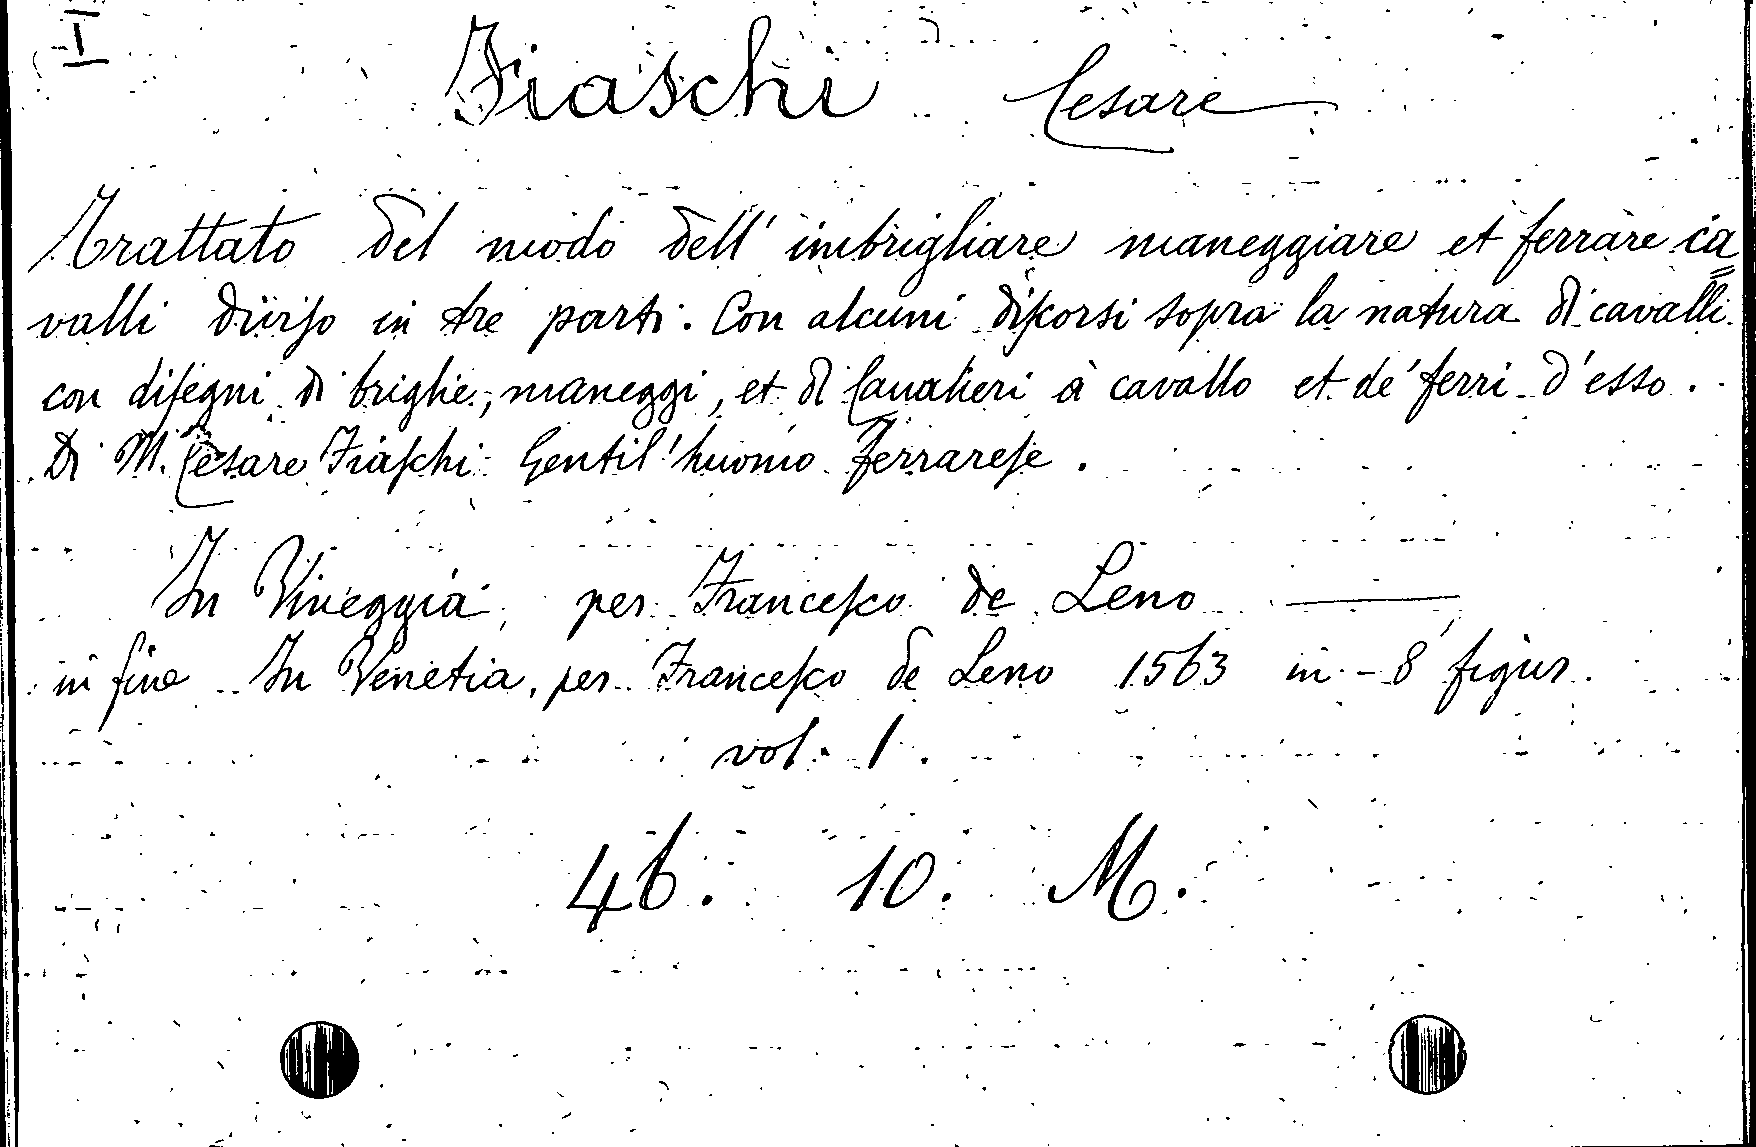 I
Fiaschi Cesare
Trattato del modo dell' imbrigliare maneggiare et ferrare ca=
valli diviſo in tre parti. Con alcuni diſcorsi sopra la natura di cavalli
con diſegni di briglie, maneggi, et di Caualieri à cavallo et de' ferri d'esso.
Di M. Cesare Fiaſchi Gentil'huomo Ferrareſe.
In Vineggia, per Franceſco de Leno ———
in fine In Venetia, per Franceſco de Leno 1563 in-8, figur.
vol. 1.
46. 10. M.